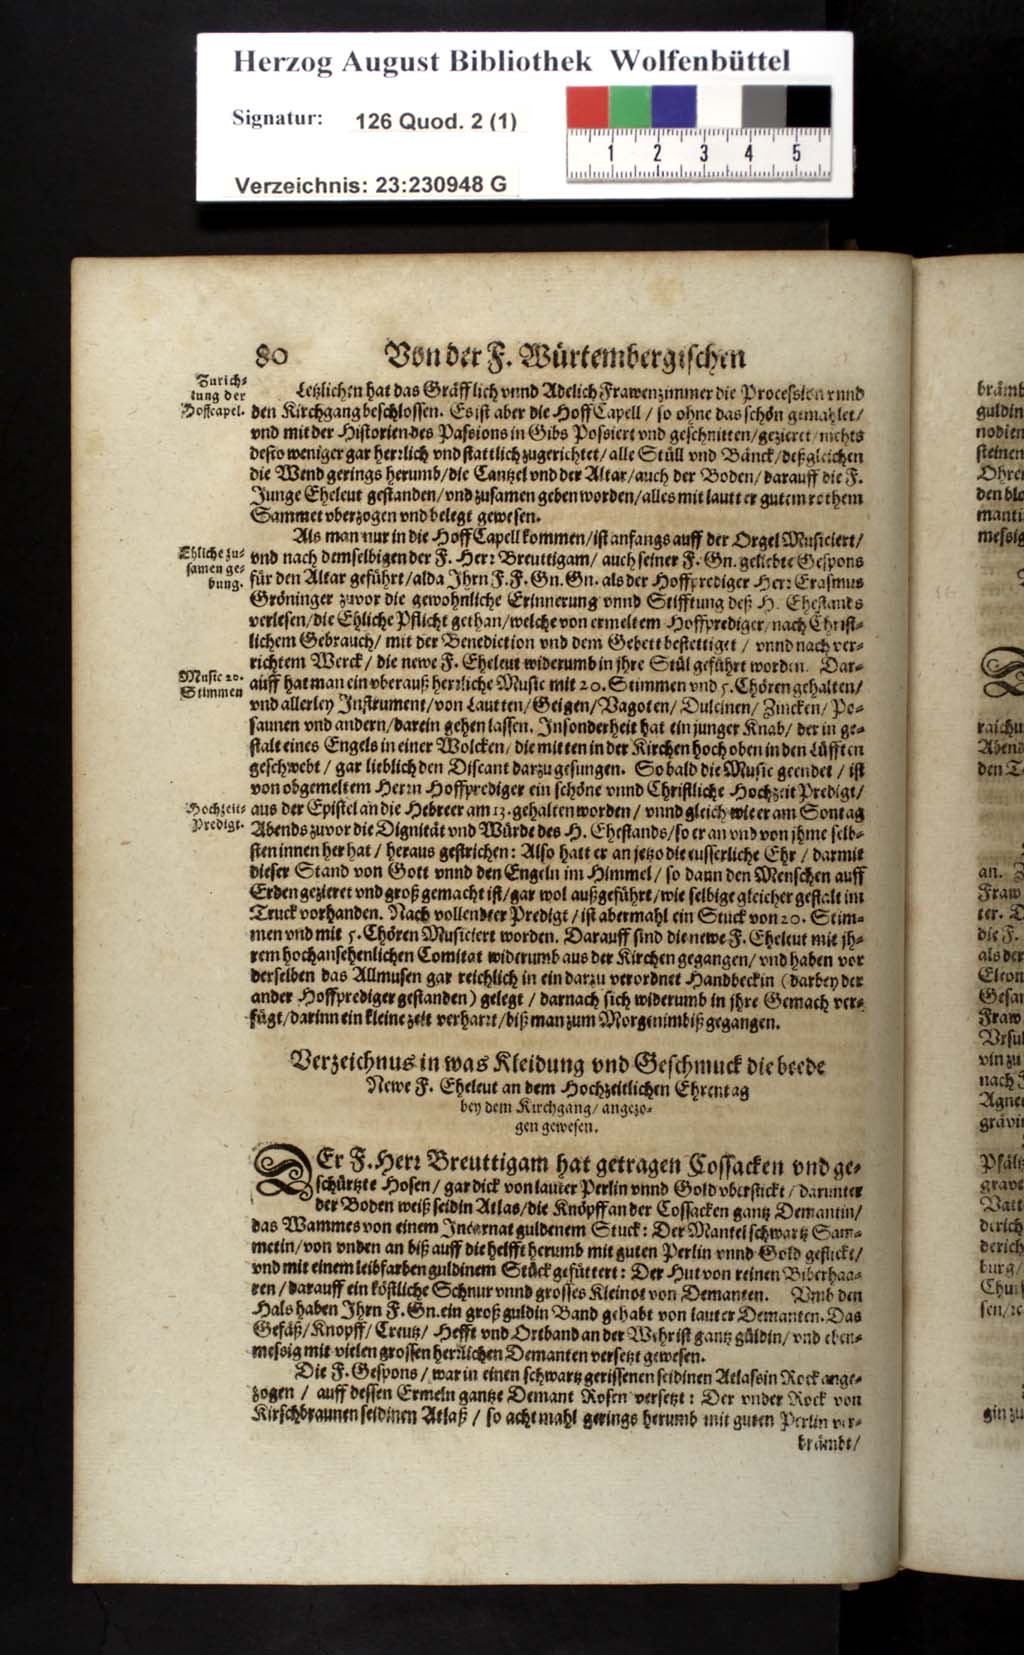 Herzog August Bibliothek Wolfenbüttel
Signatur: 126 Quod. 2 (1)
1 2 3 4 5
Verzeichnis: 23:230948 G
80 Von der F. Würtembergischen
Zurich-
tung der
Hoffcapel.
Letzlichen hat das Gräfflich vnnd Adelich Frawenzimmer die Procession vnnd
den Kirchgang beschlossen. Es ist aber die Hoff Capell / so ohne das schön gemahlet /
vnd mit der Historien des Passions in Gibs Possiert vnd geschnitten / gezieret / nichts
desto weniger gar herrlich vnd stattlich zugerichtet / alle Stüll vnd Bänck / deßgleichen
die Wend gerings herumb / die Cantzel vnd der Altar / auch der Boden / darauff die F.
Junge Eheleut gestanden / vnd zusamen geben worden / alles mit lautter gutem rothem
Sammet vberzogen vnd belegt gewesen.
Als man nur in die Hoff Capell kommen / ist anfangs auff der Orgel Musiciert /
Ehliche zu-
samen ge-
bung.
vnd nach demselbigen der F. Herr Breuttigam / auch seiner F. Gn. geliebte Gespons
für den Altar geführt / alda Ihrn F. F. Gn. Gn. als der Hoffprediger Herr Erasmus
Gröninger zuvor die gewohnliche Erinnerung vnnd Stifftung deß H. Ehestands
verlesen / die Ehliche Pflicht gethan / welche von ermeltem Hoffprediger / nach Christ-
lichem Gebrauch / mit der Benediction vnd dem Gebett bestettiget / vnnd nach ver-
richtem Werck / die newe F. Eheleut widerumb in jhre Stül geführt worden. Dar-
Music 20.
Stimmen
auff hat man ein vberauß herrliche Music mit 20. Stimmen vnd 5. Chören gehalten /
vnd allerley Instrument / von Lautten / Geigen / Vagoten / Dulcinen / Zincken / Po-
saunen vnd andern / darein gehen lassen. Insonderheit hat ein junger Knab / der in ge-
stalt eines Engels in einer Wolcken / die mitten in der Kirchen hoch oben in den Lüfften
geschwebt / gar lieblich den Discant darzu gesungen. So bald die Music geendet / ist
von obgemeltem Herrn Hoffprediger ein schöne vnnd Christliche Hochzeit Predigt /
Hochzeit-
Predigt.
aus der Epistel an die Hebreer am 13. gehalten worden / vnnd gleich wie er am Sontag
Abends zuvor die Dignität vnd Würde des H. Ehestands / so er an vnd von jhme selb-
sten innen her hat / heraus gestrichen: Also hatt er an jetzo die eusserliche Ehr / darmit
dieser Stand von Gott vnnd den Engeln im Himmel / so dann den Menschen auff
Erden gezieret vnd groß gemacht ist / gar wol außgeführt / wie selbige gleicher gestalt im
Truck vorhanden. Nach vollendter Predigt / ist abermahl ein Stuck von 20. Stim-
men vnd mit 5. Chören Musiciert worden. Darauff sind die newe F. Eheleut mit jh-
rem hochansehenlichen Comitat widerumb aus der Kirchen gegangen / vnd haben vor
derselben das Allmusen gar reichlich in ein darzu verordnet Handbeckin (darbey der
ander Hoffprediger gestanden) gelegt / darnach sich widerumb in jhre Gemach ver-
fügt / darinn ein kleine zeit verharrt / biß man zum Morgenimbiß gegangen.
Verzeichnus in was Kleidung vnd Geschmuck die beede
Newe F. Eheleut an dem Hochzeitlichen Ehrentag
bey dem Kirchgang / angezo-
gen gewesen.
DEr F. Herr Breuttigam hat getragen Cossacken vnd ge-
schürtzte Hosen / gar dick von lauter Perlin vnnd Gold vberstickt / darunter
der Boden weiß seidin Atlas / die Knöpff an der Cossacken gantz Demantin /
das Wammes von einem Incarnat guldenem Stuck: Der Mantel schwartz Sam-
metin / von vnden an biß auff die helfft herumb mit guten Perlin vnnd Gold gestickt /
vnd mit einem leibfarben guldinem Stück gefüttert: Der Hut von reinen Biberhaa-
ren / darauff ein köstliche Schnur vnnd grosses Kleinot von Demanten. Vmb den
Hals haben Ihrn F. Gn. ein groß guldin Band gehabt von lauter Demanten. Das
Gefäß / Knopff / Creutz / Hefft vnd Ortband an der Wehr ist gantz güldin / vnd eben-
messig mit vielen grossen herrlichen Demanten versetzt gewesen.
Die F. Gespons / war in einen schwartz gerissenen seidinen Atlassin Rock ange-
zogen / auff dessen Ermeln gantze Demant Rosen versetzt: Der vnder Rock von
Kirschbraunen seidinen Atlaß / so acht mahl gerings herumb mit guten Perlin ver-
brämbt /